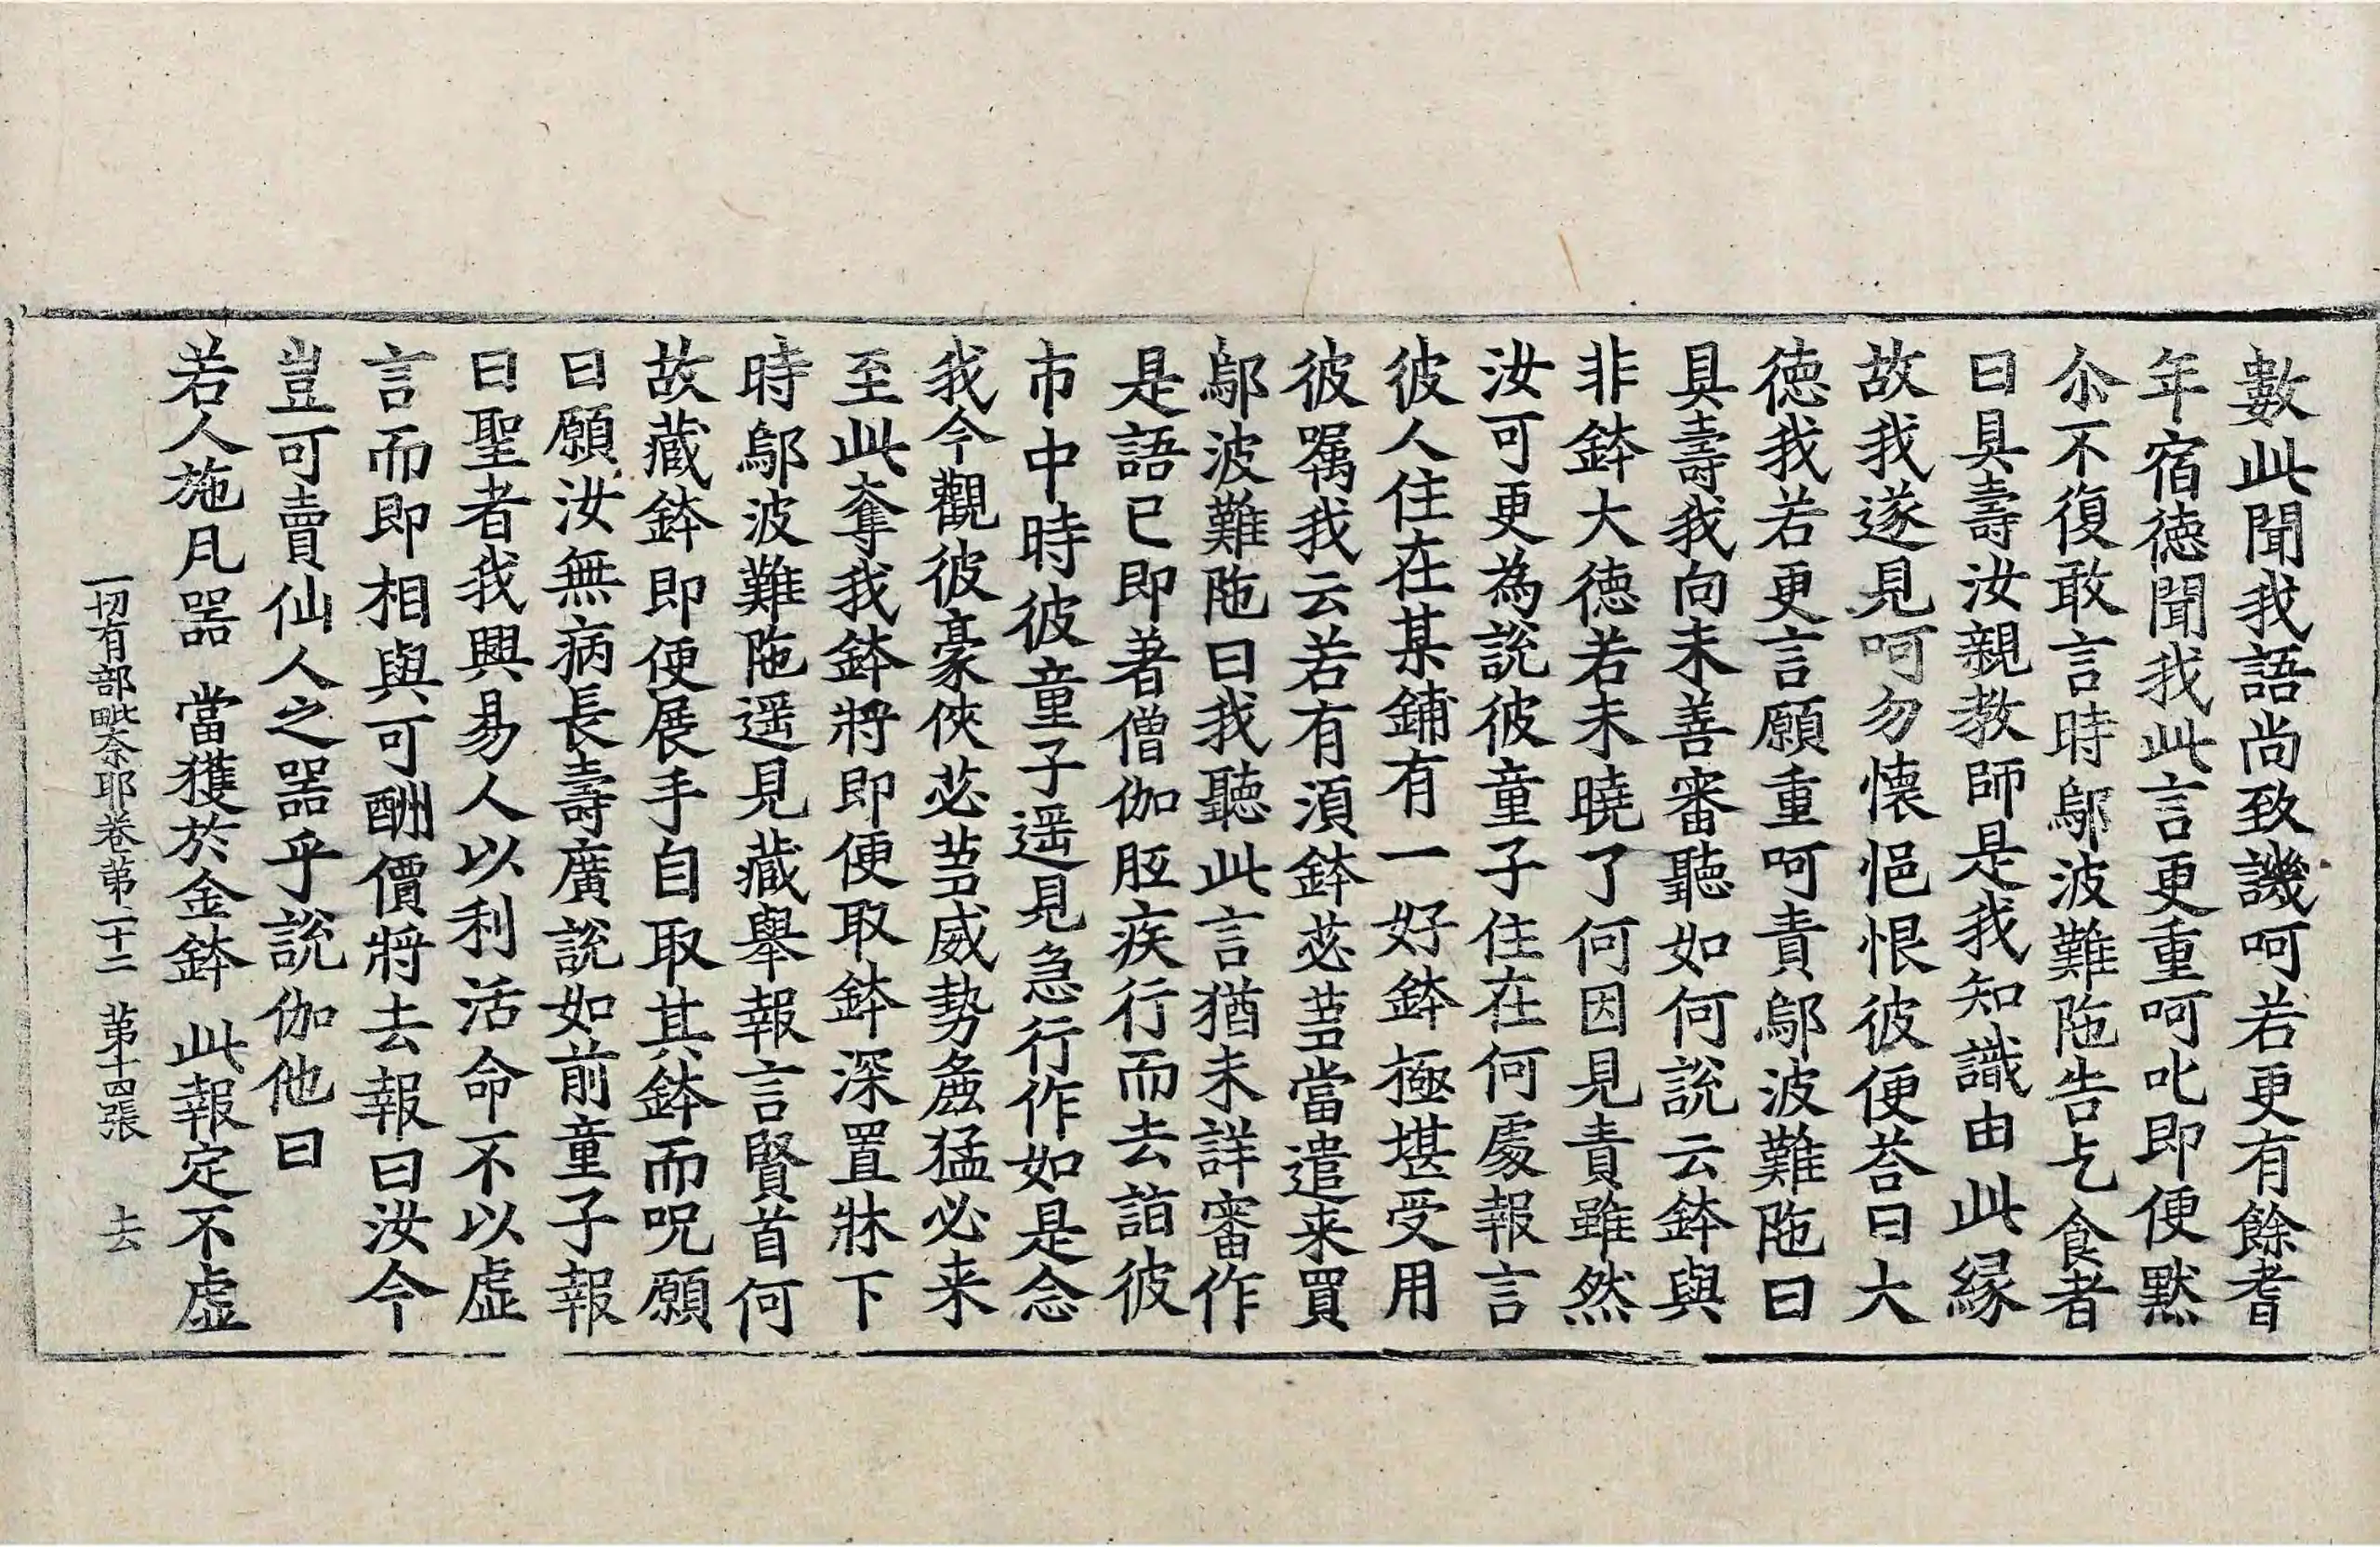 數此聞我語尚致譏呵若更有餘耆
年宿德聞我此言更重呵叱即便默
尒不復敢言時鄔波難陁告乞食者
曰具壽汝親教師是我知識由此緣
故我遂見呵勿懷悒恨彼便荅曰大
德我若更言願重呵責鄔波難陁曰
具壽我向未善審聽如何說云鉢與
非鉢大德若未曉了何因見責雖然
汝可更為說彼童子住在何處報言
彼人住在某鋪有一好鉢極堪受用
彼嘱我云若有須鉢苾蒭當遣来買
鄔波難陁曰我聽此言猶未詳審作
是語已即著僧伽胝疾行而去詣彼
市中時彼童子遥見急行作如是念
我今觀彼豪俠苾蒭威勢麁猛必来
至此奪我鉢將即便取鉢深置牀下
時鄔波難陁遥見藏舉報言賢首何
故藏鉢即便展手自取其鉢而呪願
曰願汝無病長壽廣說如前童子報
曰聖者我興易人以利活命不以虛
言而即相與可酬價將去報曰汝今
豈可賣仙人之器乎說伽他曰
若人施凡器　當獲於金鉢　此報定不虛
一切有部毗奈耶卷苐二十二　苐十四張　去